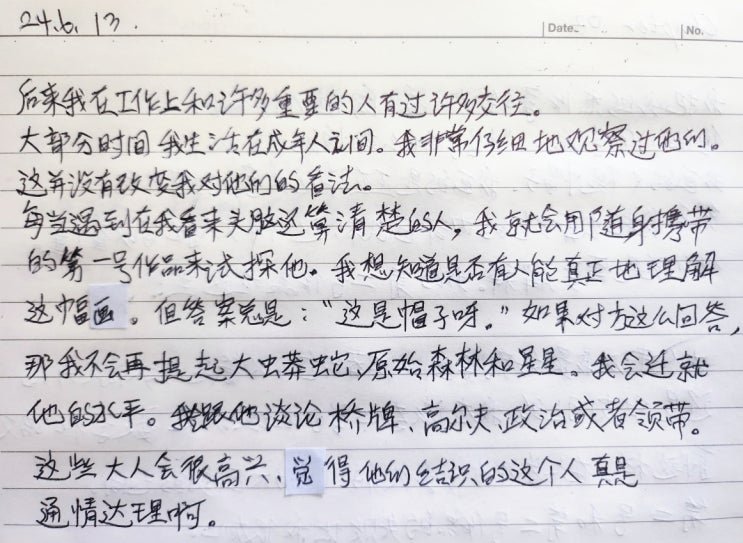 24.6.13.
Date.
No.
后来我在工作上和许多重要的人有过许多交往。
大部分时间我生活在成年人之间。我非常仔细地观察过他们。
这并没有改变我对他们的看法。
每当遇到在我看来头脑还算清楚的人，我就会用随身携带
的第一号作品来试探他。我想知道是否有人能真正地理解
这幅画。但答案总是："这是帽子呀。"如果对方这么回答，
那我不会再提起大虫莽蛇、原始森林和星星。我会迁就
他的水平。我跟他谈论桥牌、高尔夫、政治或者领带。
这些大人会很高兴、觉得他们结识的这个人真是
通情达理啊。